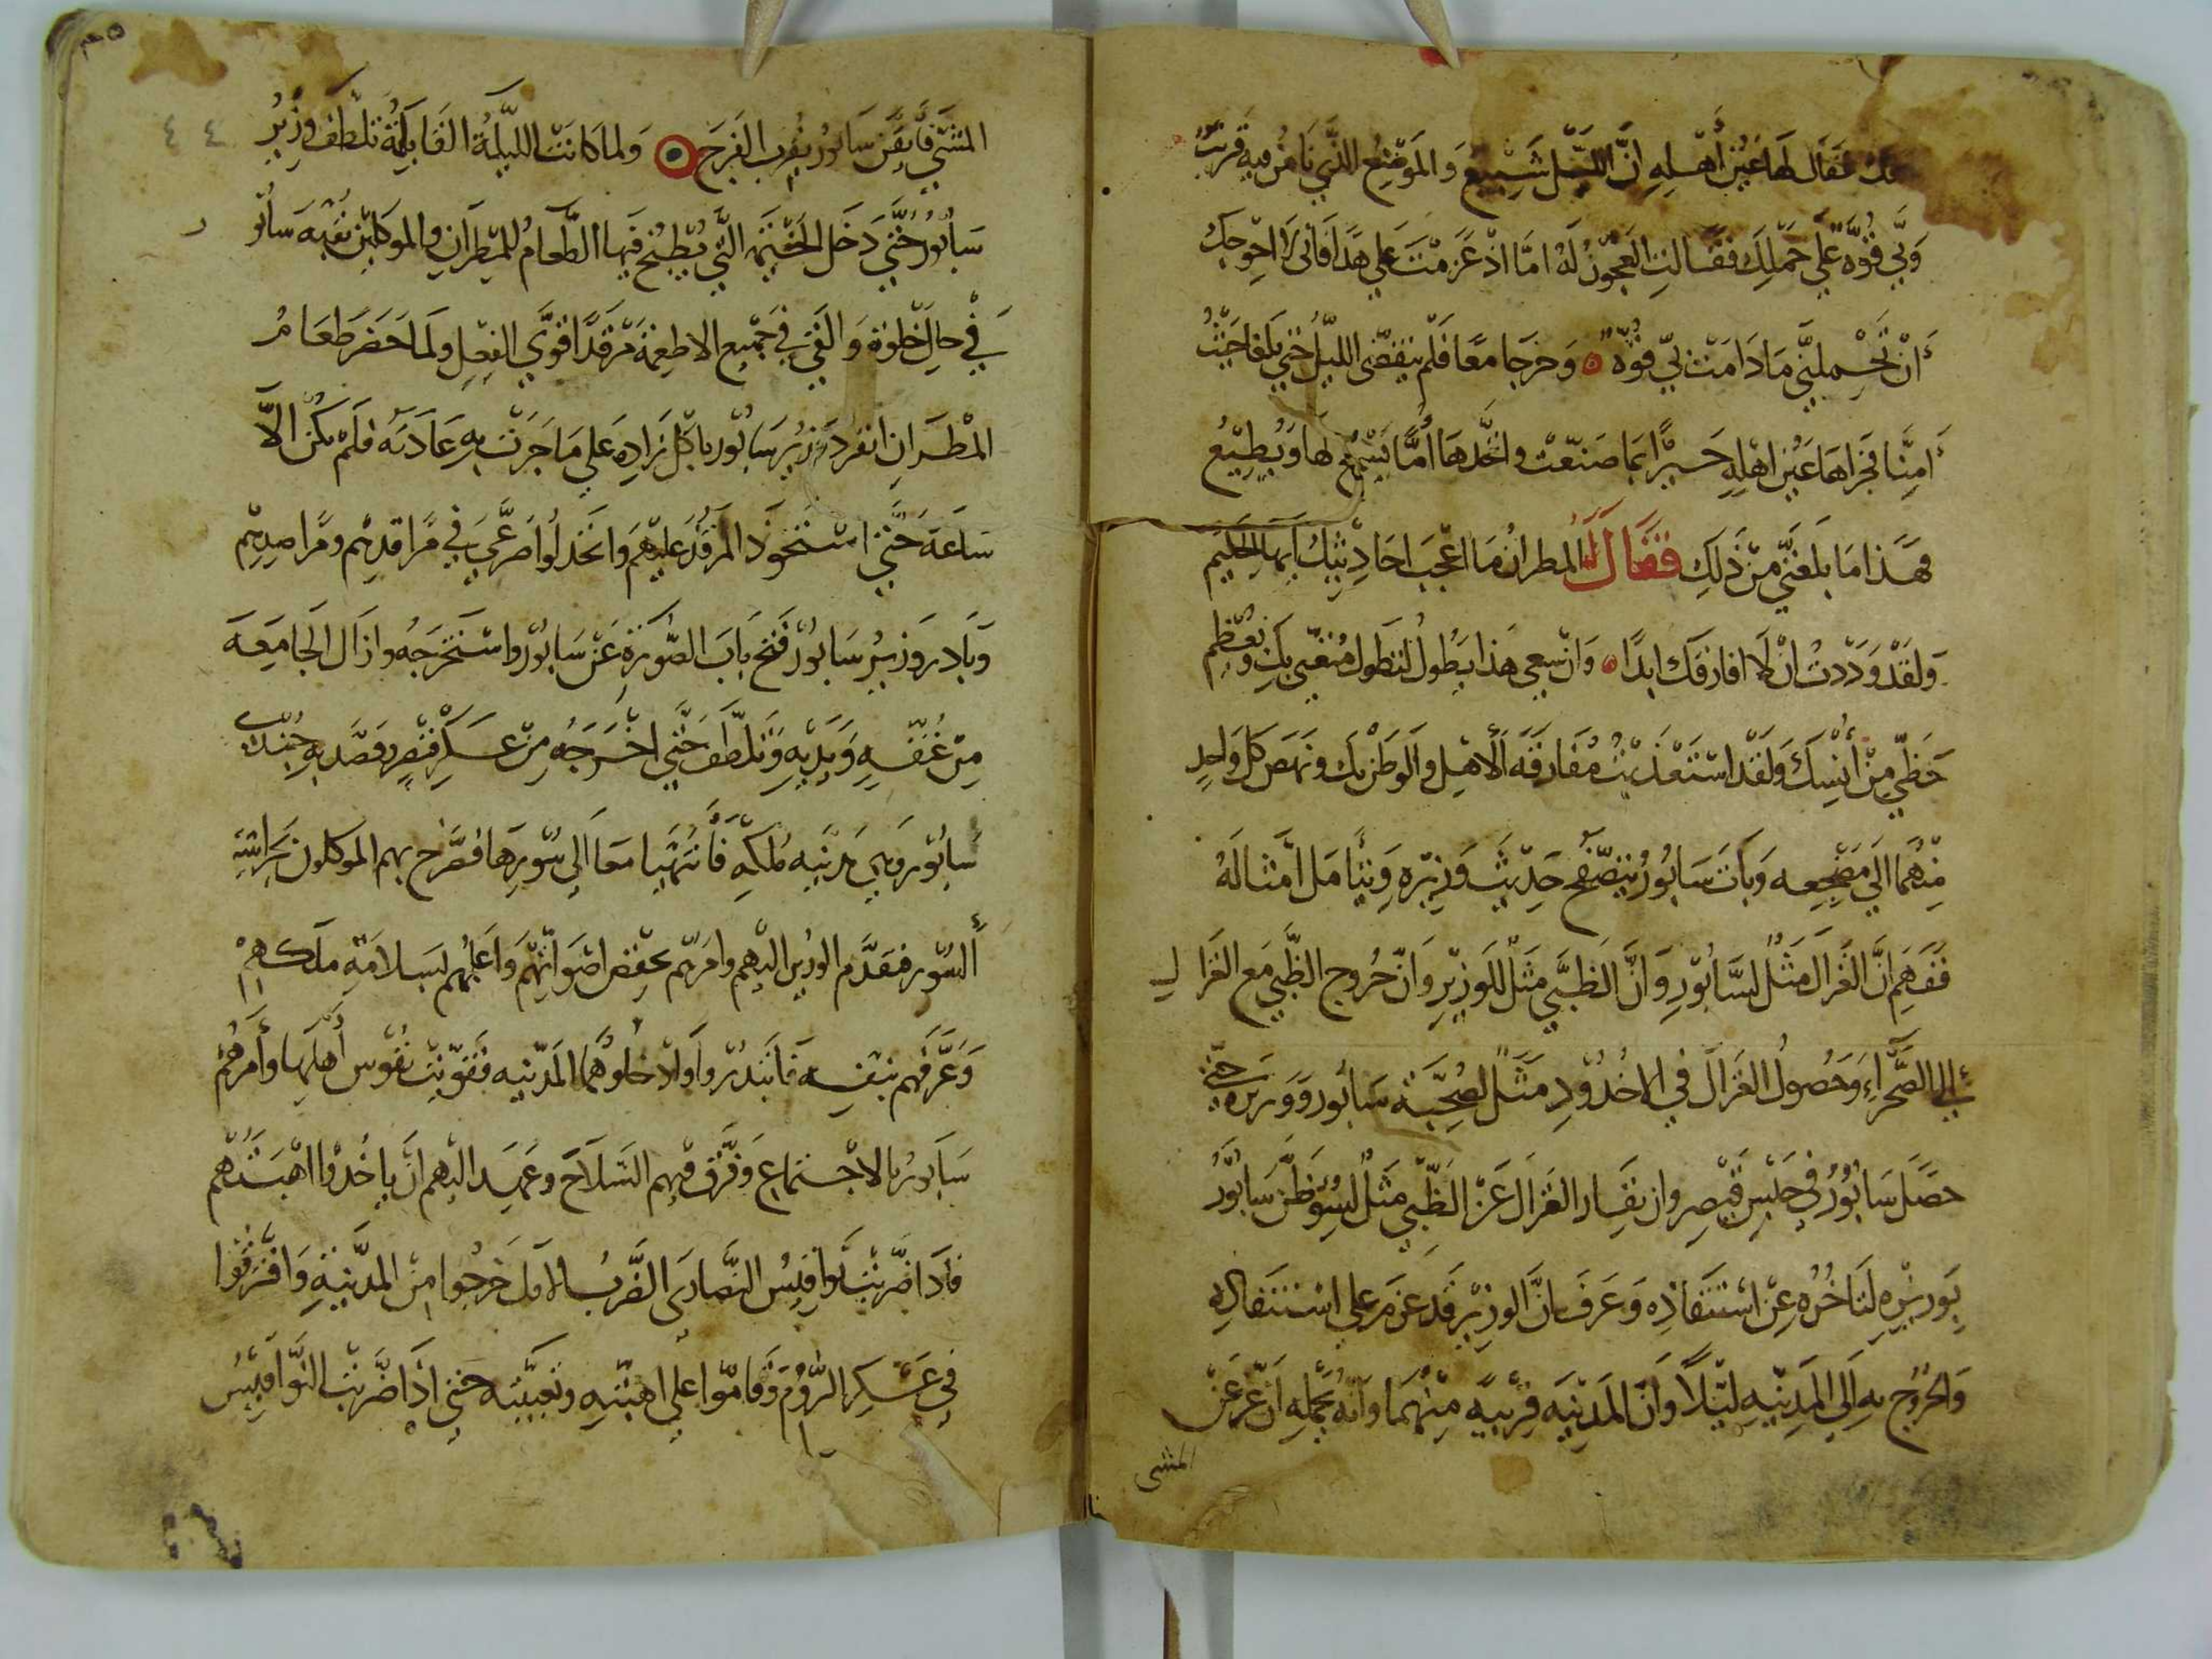 فقال لها عين أهله ان الليل شييع والموضع الذي نامن فيه قريب
وبي قوة على حملك فقالت العجوز له اما اذ عزمت على هذا فانى لا احوجك
أن تحملني ما دامت بي قوة وخرجا معا فلم ينقضى الليل حتي بلغا حيث
أمنا فجزاها عين اهله خيرا بما صنعت واتخدها أما يسمع لها ويطيع
فهذا ما بلغني من ذلك فقال له المطران ما اعجب احاديثك ايها الحكيم
ولقد وددت ان لا افارقك ابدا وان سعي هذا يطول لتطول متعتي بك ويعظم
حظي من أنسك ولقد استعذبت مفارقه الأهل والوطن بك ونهض كل واحد
منهما الي مضجعه وبات سابور يتصفح حديث وزيره ويتأمل امثاله
ففهم ان الغزال مثل لسابور وان الظبي مثل للوزير وان خروج الظبي مع الغزال
الي الصحراء وحصول الغزال في الاخدود مثل لصحبة سابور ووزيره حتي
حصل سابور في حبس قيصر وان نفار الغزال عن الظبي مثل لسوء ظن سابور
بوزيره لتاخره عن استنقاذه وعرف ان الوزير قد عزم على استنقاذه
والخروج به الي المدينه ليلا وان المدينه قريبه منهما وانه يحمله ان عجز عن
المشي
المشي فأيقن سابور بقرب الفرج ولما كانت الليلة القابلة تلطف وزير ٤٤
سابور حتي دخل الخيمه التي يطبخ فيها الطعام للمطران والموكلين بقبه سابور
في حال خلوة والقي في جميع الاطعمة مرقدا قوي الفعل ولما حضر طعام
المطران انفرد وزير سابور باكل زاده علي ما جرت به عادته فلم يكن الا
ساعة حتي استحوذ المرقد عليهم وانخدلوا صرعي في مراقدهم ومراصدهم
وبادر وزير سابور ففتح باب الصورة عن سابور واستخرجه وازال الجامعه
من عنقه ويديه وتلطف حتي اخرجه من عسكر قيصر وقصد به جندي
سابور وهي مدينه ملكه فأنتهيا معا الي سورها فصرخ بهم الموكلون بحراسة
السور فتقدم الوزير اليهم وامرهم بخفض اصواتهم وأعلمهم بسلامة ملكهم
وعرفهم بنفسه فابتدروا وادخلوهما المدينه فقويت نفوس أهلها وأمرهم
سابور بالاجتماع وفرق فيهم السلاح وعهد اليهم ان ياخذوا اهبتهم
فاذا ضربت نواقيس النصارى الضرب الاول خرجوا من المدينة وافترقوا
في عسكر الروم وقاموا علي اهبته وتعبيته حتي اذا ضربت النواقيس